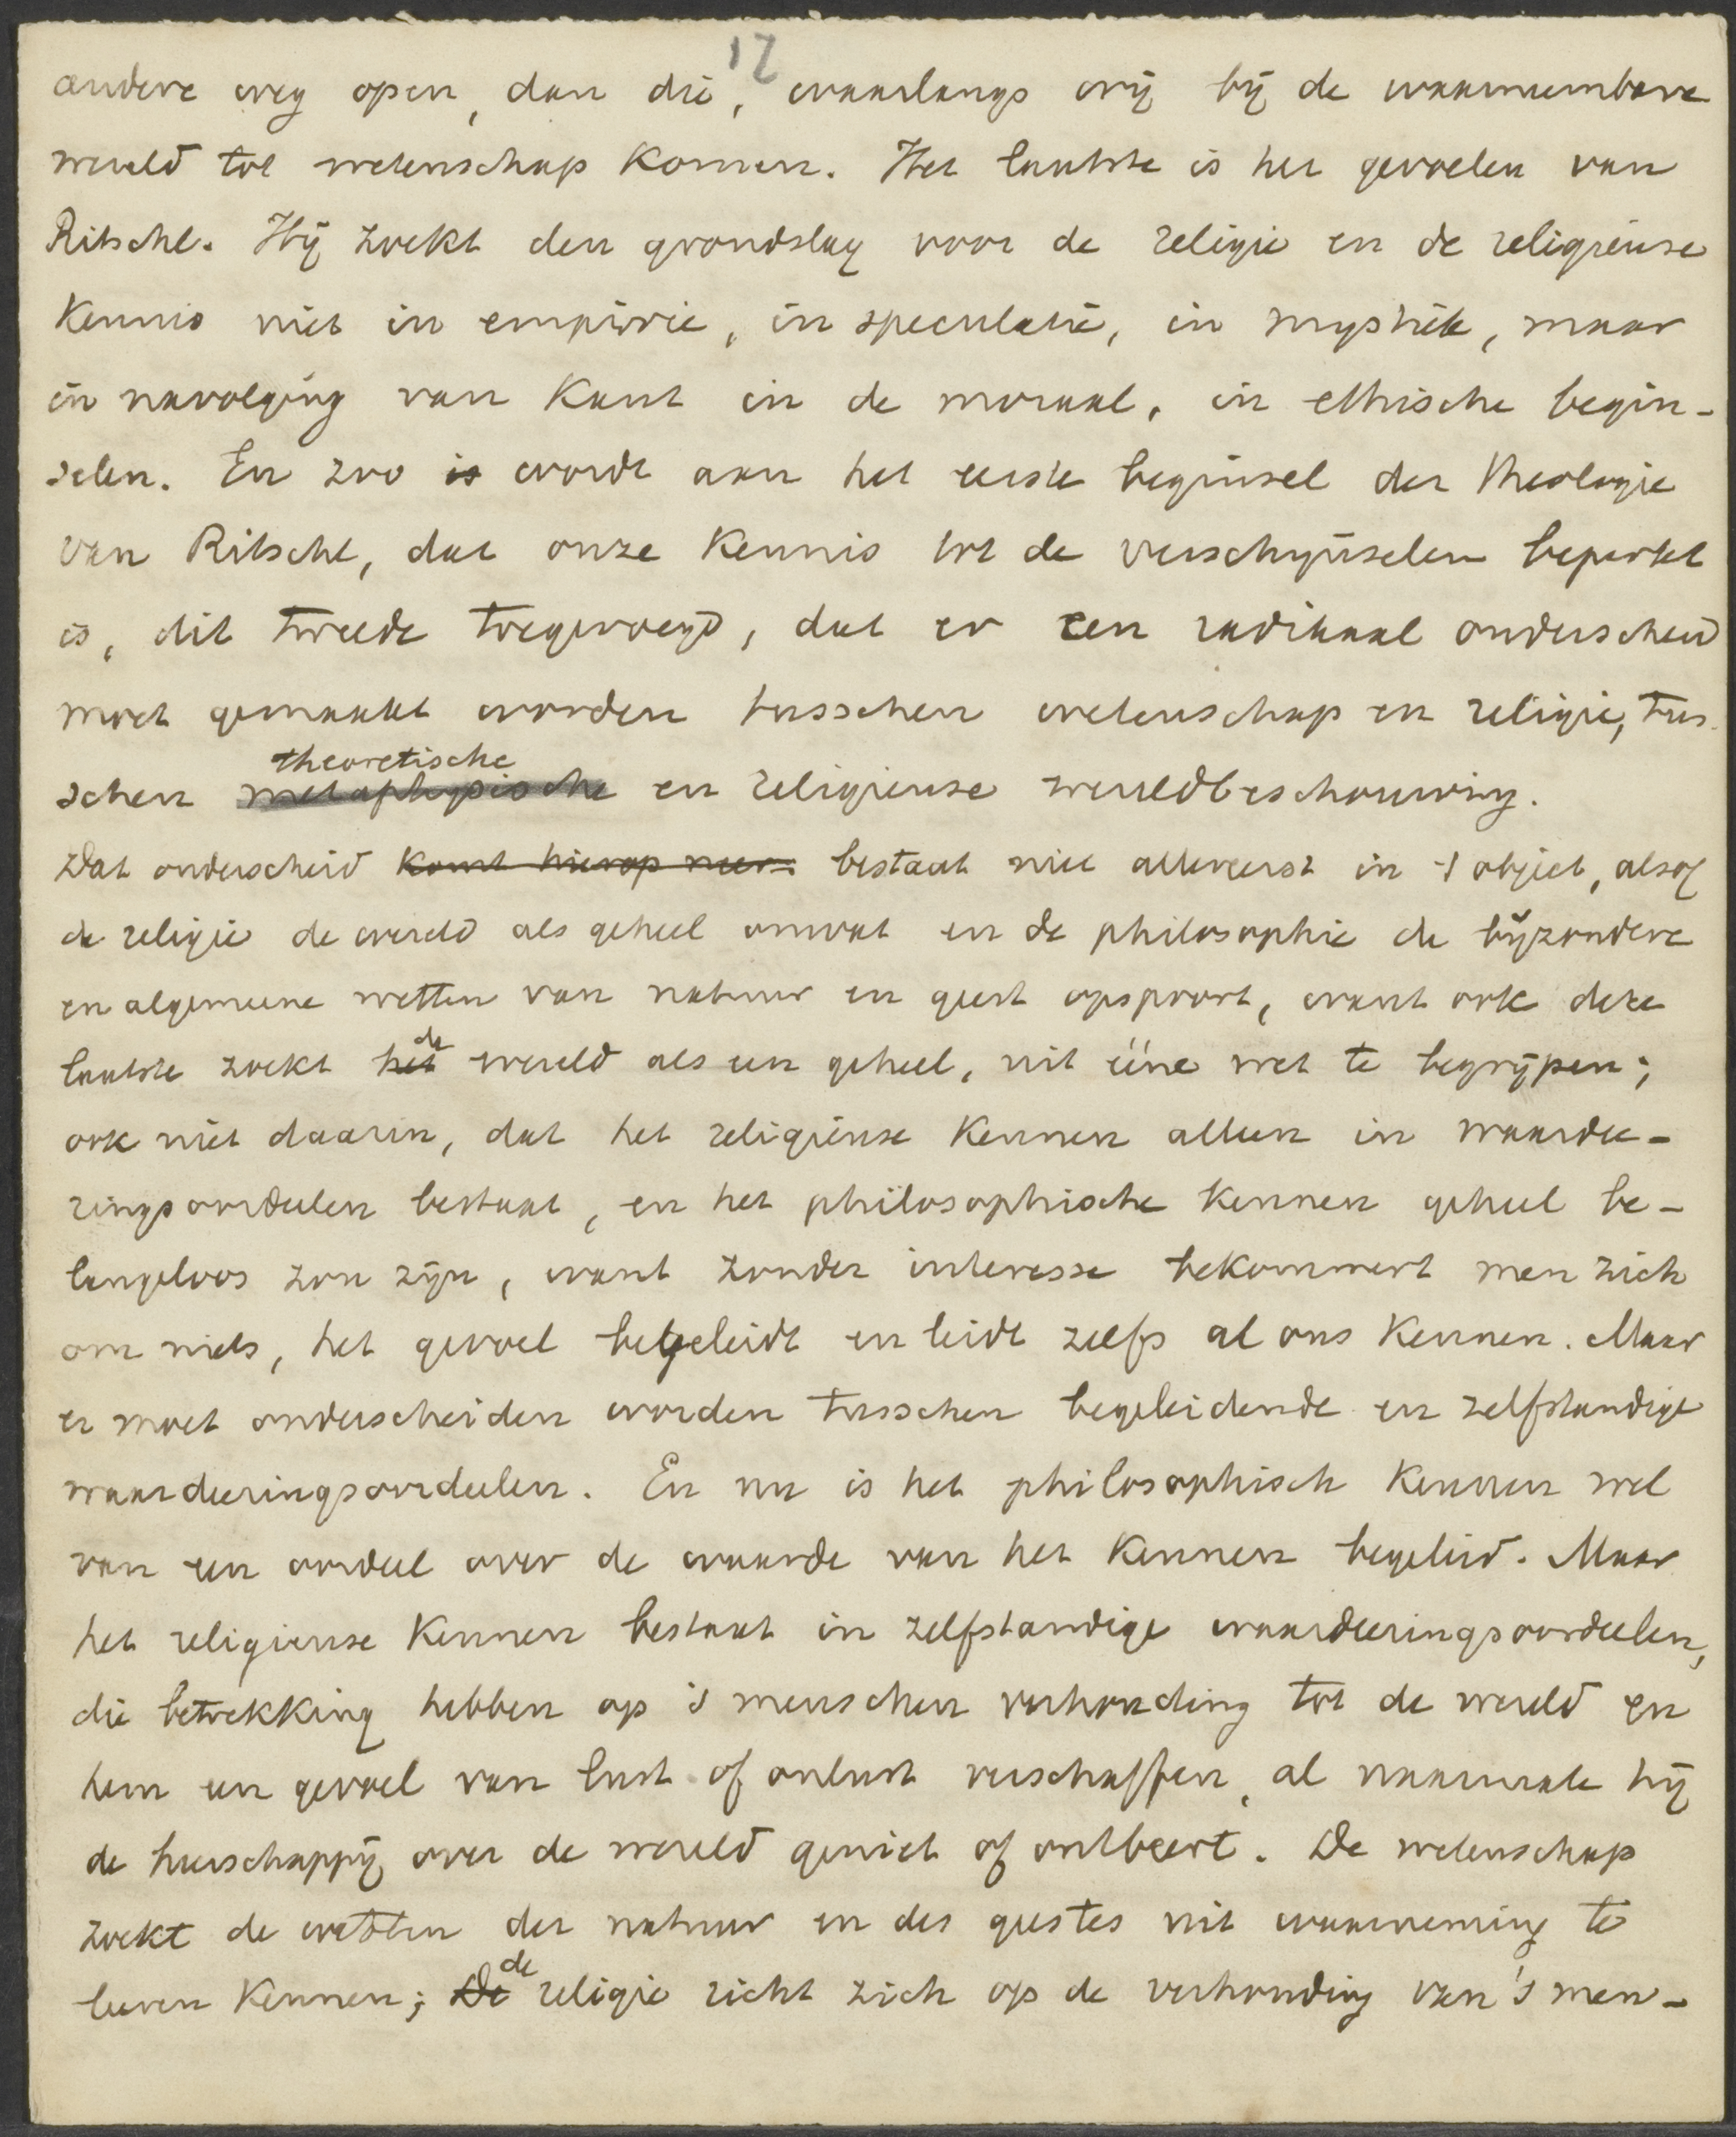 17
andere weg open, dan die, waarlangs wij bij de waarneembare
wereld tot wetenschap komen. Het laatste is het gevoelen van
Ritschl. Hij zoekt den grondslag voor de religie en de religieuse
kennis niet in empirie, in speculatie, in mystiek, maar
in navolging van Kant in de moraal, in ethische begin-
selen. En zoo is wordt aan het eerste beginsel der theologie
van Ritschl, dat onze kennis tot de verschijnselen beperkt
is, dit tweede toegevoegd, dat er een radikaal onderscheid
moet gemaakt worden tusschen wetenschap en religie, tus-
theoretische
schen metaphysische en religieuse wereldbeschouwing.
Dat onderscheid komt hierop neer: bestaat niet allereerst in 't object, alsof
de religie de wereld als geheel omvat en de philosophie de bijzondere
en algemeene wetten van natuur en geest opspoort, want ook deze
de
laatste zoekt het wereld als een geheel, uit ééne wet te begrijpen;
ook niet daarin, dat het religieuse kennen alleen in waardee-
ringsoordeelen bestaat, en het philosophische kennen geheel be-
langeloos zou zijn, want zonder interesse bekommert men zich
om niets, het gevoel begeleidt en leidt zelfs al ons kennen. Maar
er moet onderscheiden worden tusschen begeleidende en zelfstandige
waardeeringsoordeelen. En nu is het philosophisch kennen wel
van een oordeel over de waarde van het kennen begeleid. Maar
het religieuse kennen bestaat in zelfstandige waardeeringsoordeelen,
die betrekking hebben op 's menschen verhouding tot de wereld en
hem een gevoel van lust of onlust verschaffen, al naarmate hij
de heerschappij over de wereld geniet of ontbeert. De wetenschap
zoekt de wetten der natuur en des geestes uit waarneming te
de
leeren kennen; De religie richt zich op de verhouding van 's men-